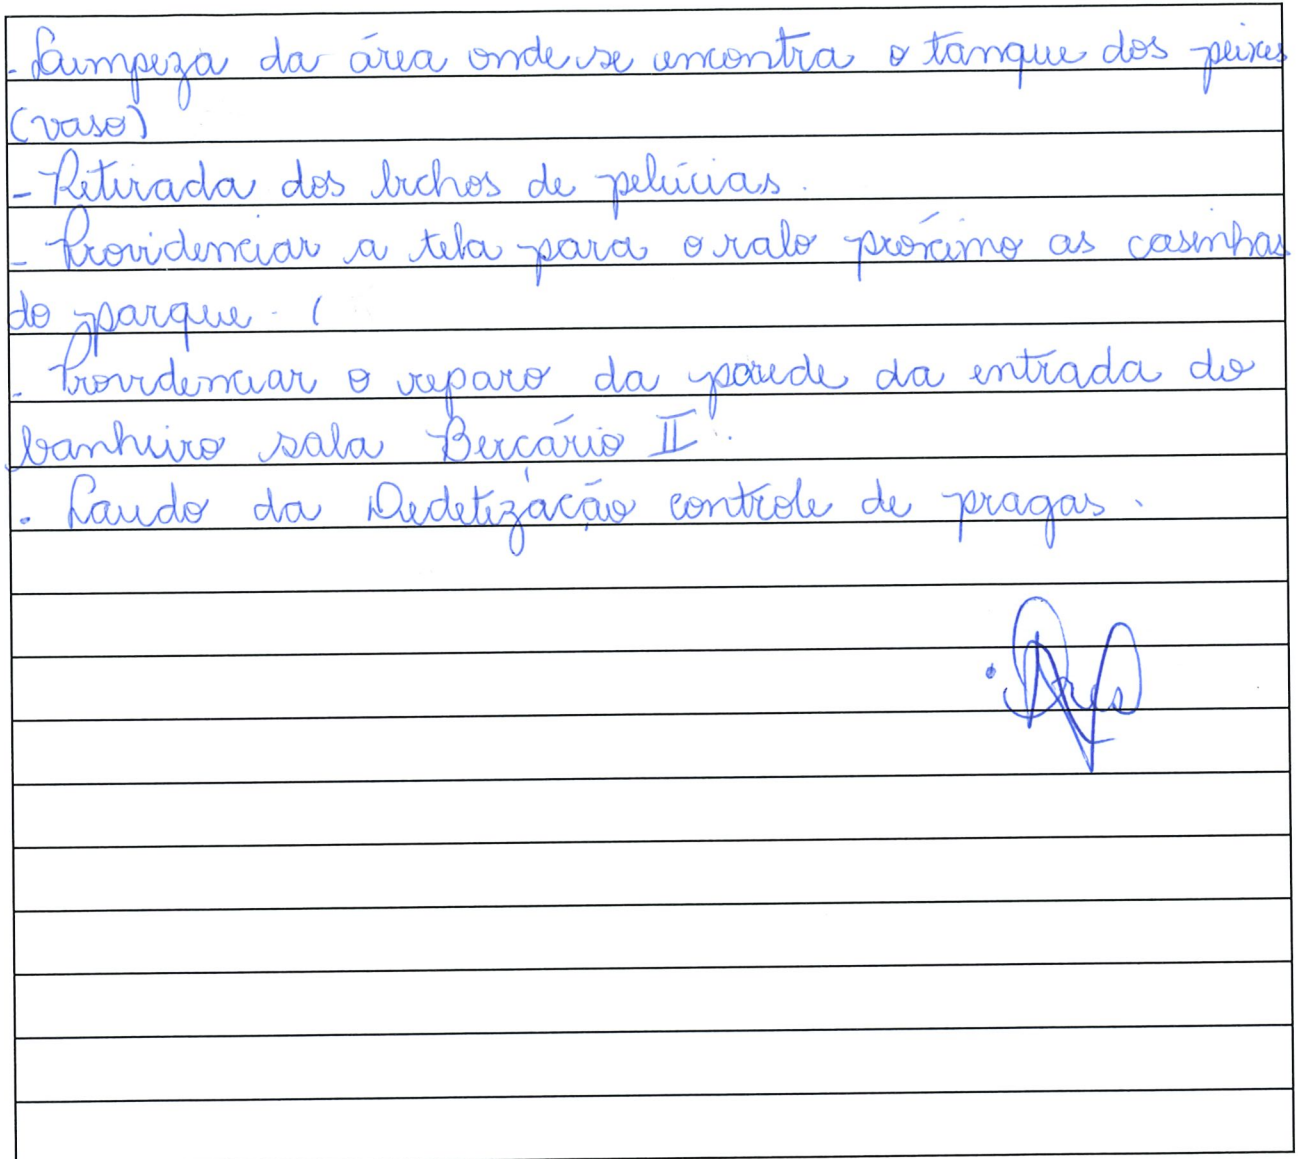 - Limpeza da área onde se encontra o tanque dos peixes
(vaso)
- Retirada dos bichos de pelúcias.
- Providenciar a tela para o ralo próximo as casinhas
do parque.
- Providenciar o reparo da parede da entrada do
banheiro sala Berçário II.
. Laudo da Dedetização controle de pragas.